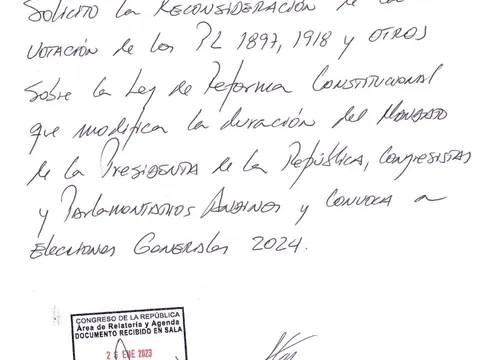 Solicito la Reconsideración de la
votación de los PL 1897, 1918 y otros
sobre la Ley de Reforma Constitucional
que modifica la duración del Mandato
de la Presidenta de la República, Congresistas
y Parlamentarios Andinos y convoca a
Elecciones Generales 2024.
CONGRESO DE LA REPÚBLICA
Área de Relatoría y Agenda
DOCUMENTO RECIBIDO EN SALA
26 ENE 2023